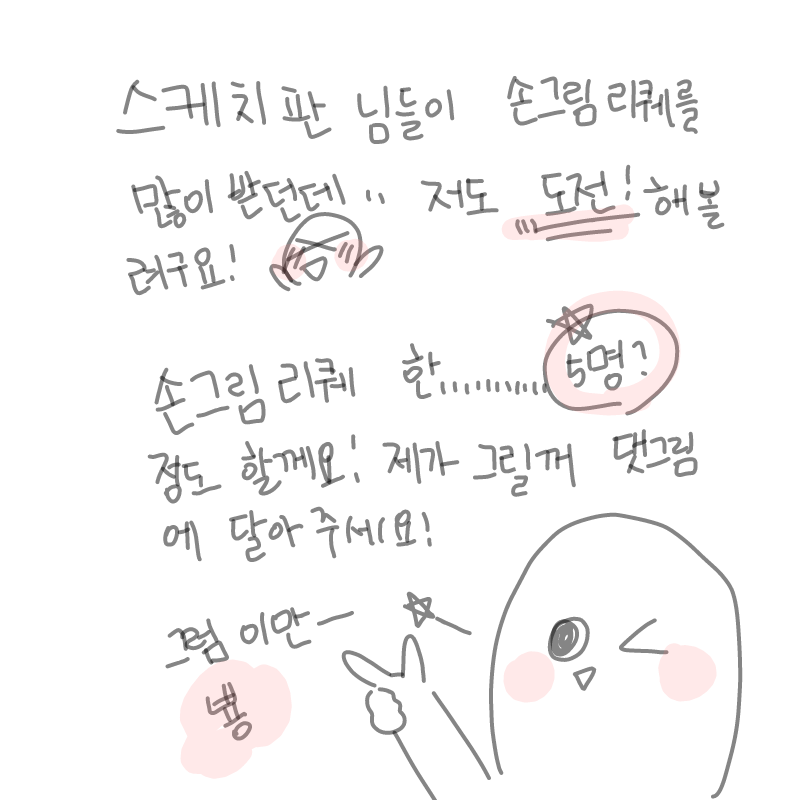 스케치판 님들이 손그림 리퀘를
많이 받던데 저도 도전! 해볼
려구요!
손그림 리퀘 한...........5명?
정도 할께요! 제가 그릴꺼 댓그림
에 달아 주세요!
그럼 이만ㅡ
뿅